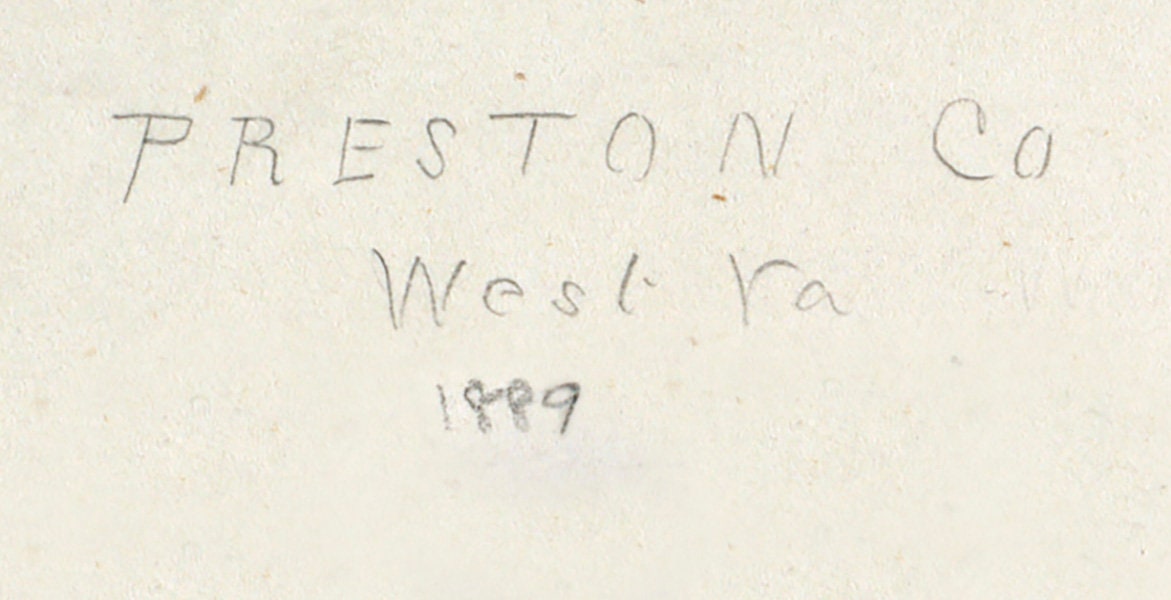 PRESTON Co
West Va
1889